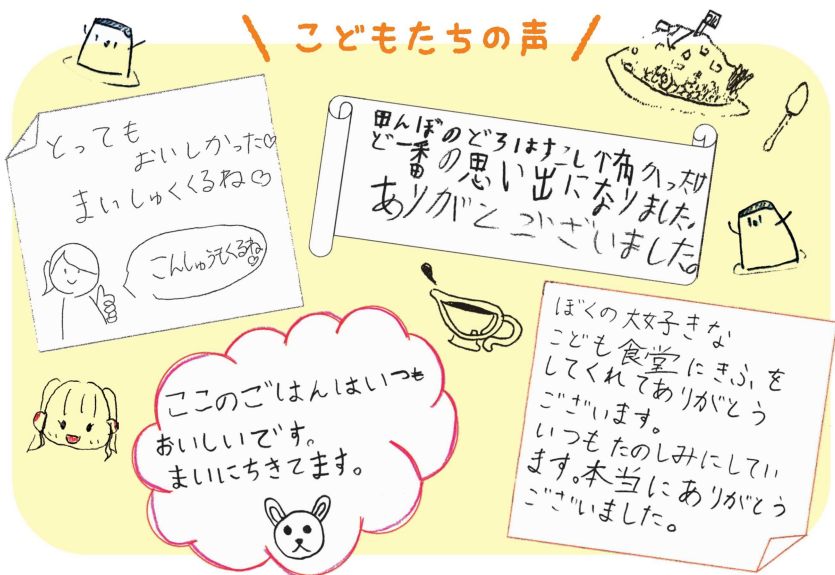 こどもたちの声
とっても
おいしかった♡
まいしゅくくるね♡
こんしゅうもくるね♡
田んぼのどろはすこし怖かったけ
ど一番の思い出になりました。
ありがとうございました。
ここのごはんはいつも
おいしいです。
まいにちきてます。
ぼくの大好きな
こども食堂にきふを
してくれてありがとう
ございます。
いつもたのしみにしてい
ます。本当にありがとう
ございました。